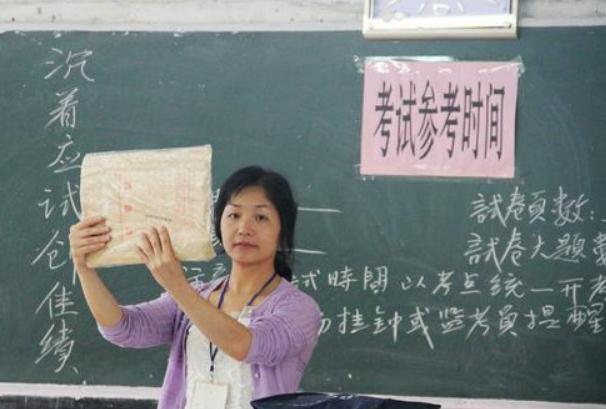 沉着应试创佳绩
考试参考时间
試卷頁数:
試卷大題
試時間以考点统一开
挂钟或监考員提醒